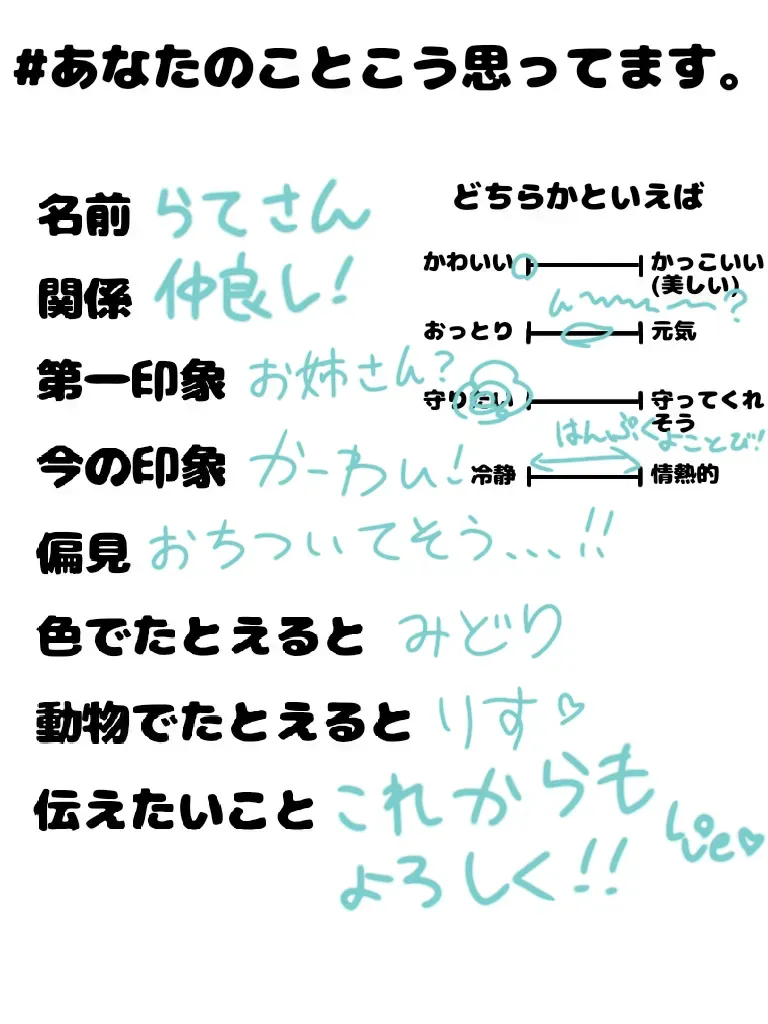 #あなたのことこう思ってます。
名前 らてさん
関係 仲良し!
第一印象 お姉さん?
今の印象 かーわい!
偏見 おちついてそう、、、!!
色でたとえると みどり
動物でたとえると りす♡
伝えたいこと これからも
よろしく!!
どちらかといえば
かわいい かっこいい
(美しい)
ん〜〜〜?
おっとり 元気
守りたい 守ってくれ
そう
はんぷくよことび!
冷静 情熱的